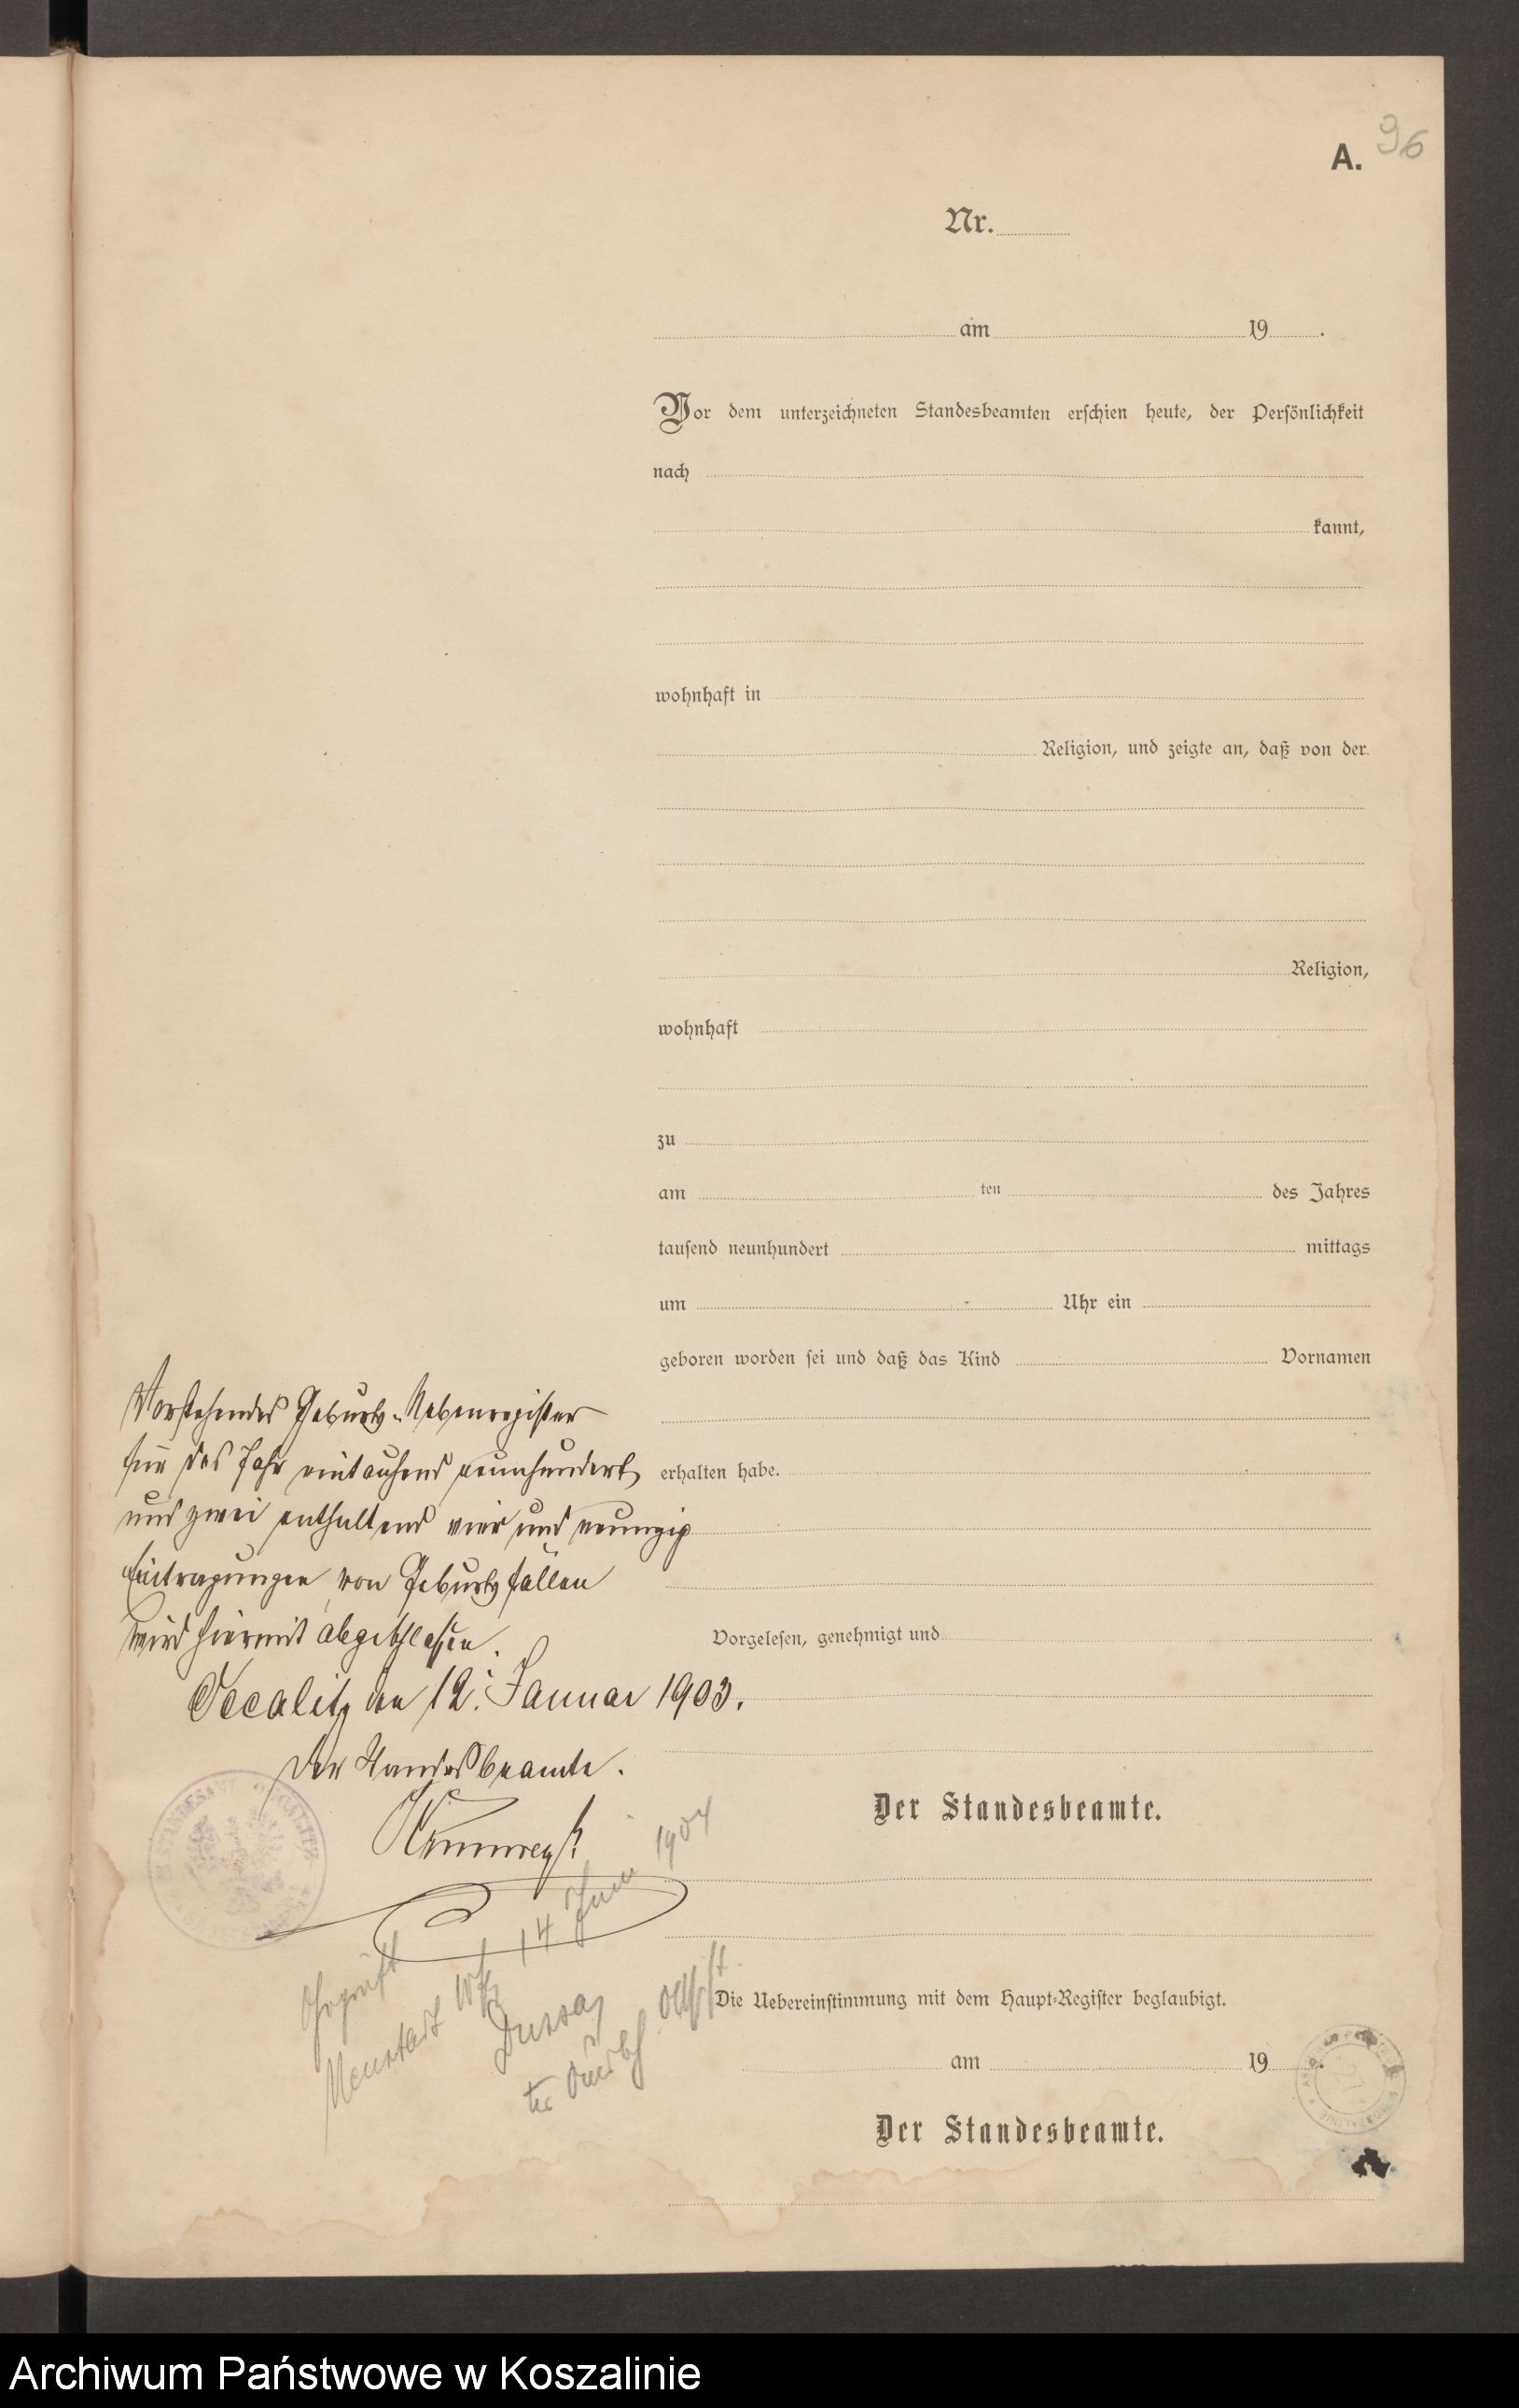 A. 96
Nr.
am 19 .
Vor dem unterzeichneten Standesbeamten erschien heute, der Persönlichkeit
nach
kannt,
wohnhaft in
Religion, und zeigte an, daß von der
Religion,
wohnhaft
zu
am ten des Jahres
tausend neunhundert mittags
um Uhr ein
geboren worden sei und daß das Kind Vornamen
erhalten habe.
Vorgelesen, genehmigt und
Der Standesbeamte.
Die Uebereinstimmung mit dem Haupt-Register beglaubigt.
am 19 .
Der Standesbeamte.
Vorstehendes Geburts-Nebenregister
für das Jahr eintausend neunhundert
und zwei enthaltend vier und neunzig
Eintragungen von Geburtsfällen
wird hiermit abgeschlossen.
Occalitz den 12. Januar 1903.
Der Standesbeamte.
STANDESAMT OCCALITZ
Geprüft
Neustadt Wpr 14 Juni 1904
Archiwum Państwowe w Koszalinie